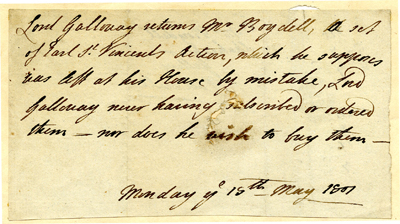 Lord Galloway returns Mr Boydell, the set
of Earl St Vincents Action, which he supposes
was left at his House by mistake, Lord
Galloway never having subscribed or ordered
them — nor does he wish to buy them —
Monday ye 18th May 1801